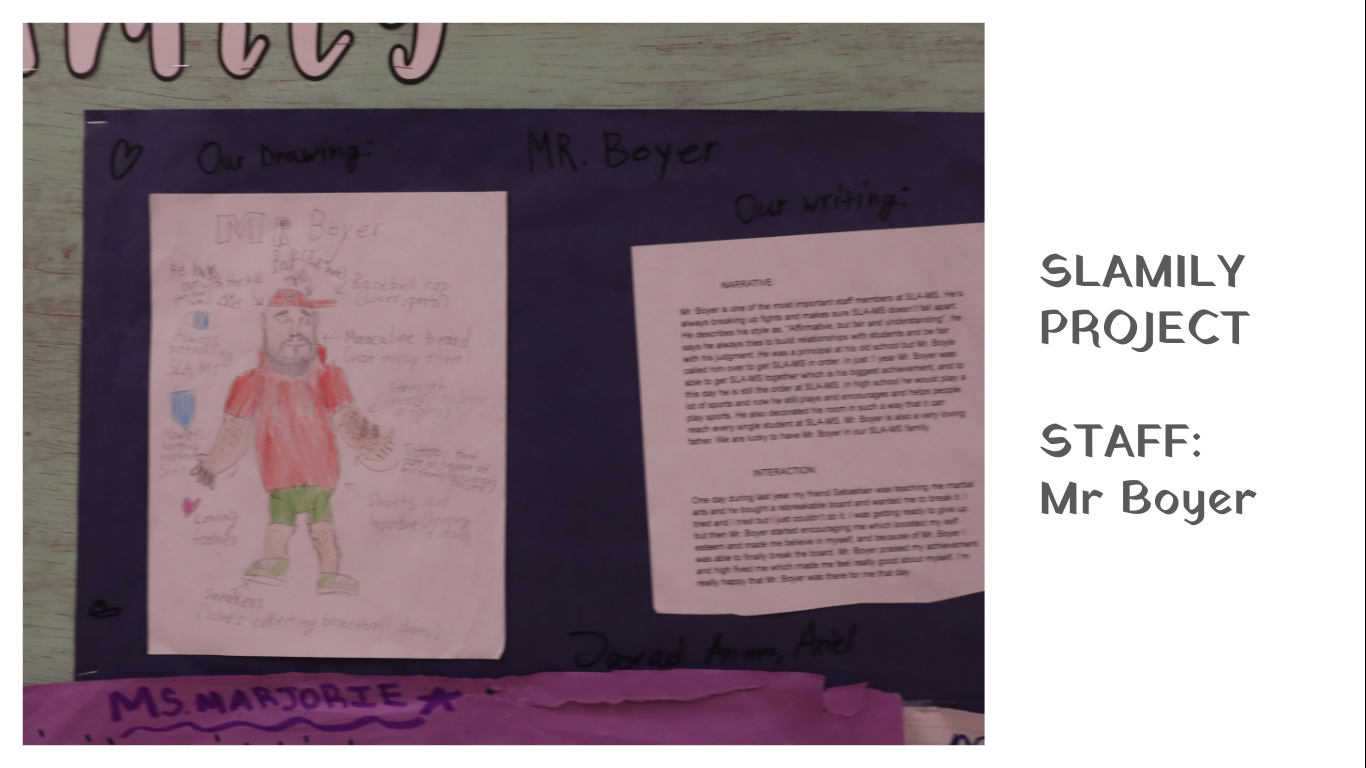 amily
Our Drawing:
MR. Boyer
Our writing:
MR Boyer
Baseball cap
(Loves sports)
Masculine beard
(not messy either)
SLA-MS
Shorts and
hoodie
Loving
father
Sneakers
(loves collecting basketball shoes)
NARRATIVE:
Mr. Boyer is one of the most important staff members at SLA-MS. He's
always breaking up fights and makes sure SLA-MS doesn't fall apart.
He describes his style as, "Affirmative, but fair and understanding", he
says he always tries to build relationships with students and be fair
with his judgment. He was a principal at his old school but Mr. Boyle
called him over to get SLA-MS in order. In just 1 year Mr. Boyer was
able to get SLA-MS together which is his biggest achievement, and to
this day he is still the order at SLA-MS. In high school he would play a
lot of sports and now he still plays and encourages and helps people
play sports. He also decorated his room in such a way that it can
reach every single student at SLA-MS. Mr. Boyer is also a very loving
father. We are lucky to have Mr. Boyer in our SLA-MS family.
INTERACTION:
One day during last year my friend Sebastian was teaching me martial
arts and he bought a rebreakable board and wanted me to break it. I
tried and I tried but I just couldn't do it. I was getting ready to give up
but then Mr. Boyer started encouraging me which boosted my self
esteem and made me believe in myself, and because of Mr. Boyer I
was able to finally break the board. Mr. Boyer praised my achievement
and high fived me which made me feel really good about myself. I'm
really happy that Mr. Boyer was there for me that day.
Ariel
MS. MARJORIE
SLAMILY
PROJECT
STAFF:
Mr Boyer